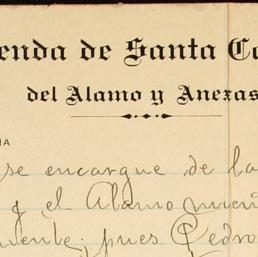 enda de Santa Ca
del Alamo y Anexas
IA
se encargue de la
y el Alamo mien
uente, pues Pedro